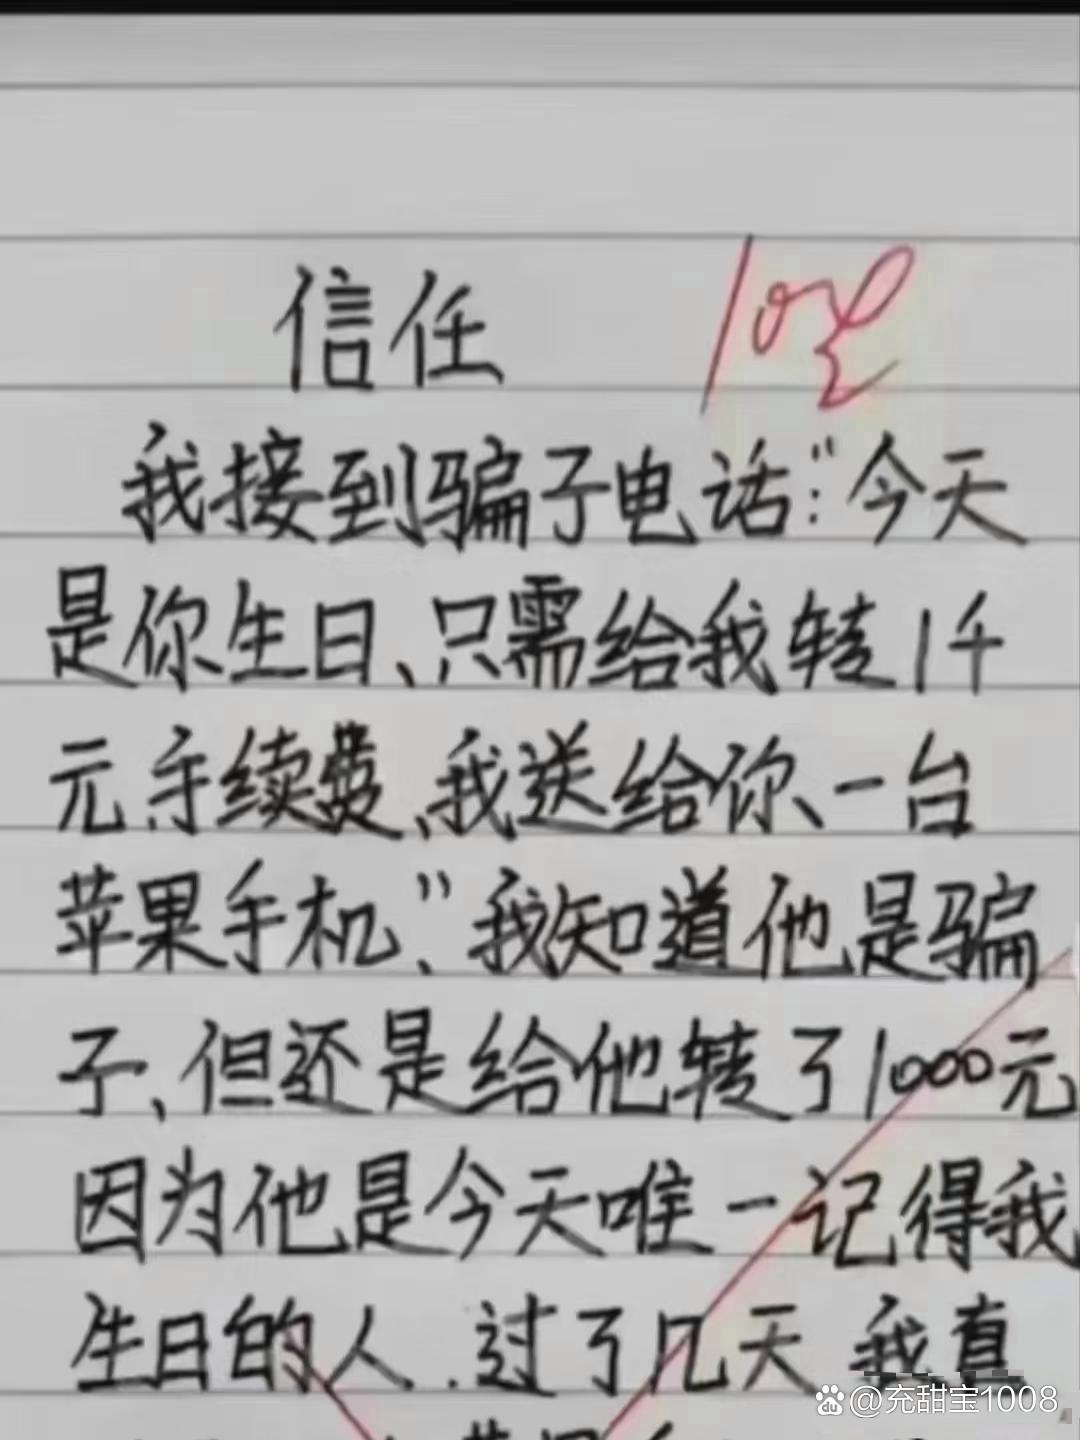 信任
我接到骗子电话:“今天
是你生日、只需给我转1千
元手续费、我送给你、一台
苹果手机、”我知道他是骗
子、但还是给他转了1000元
因为他是今天唯一记得我
生日的人..过了几天 我真
@充甜宝1008